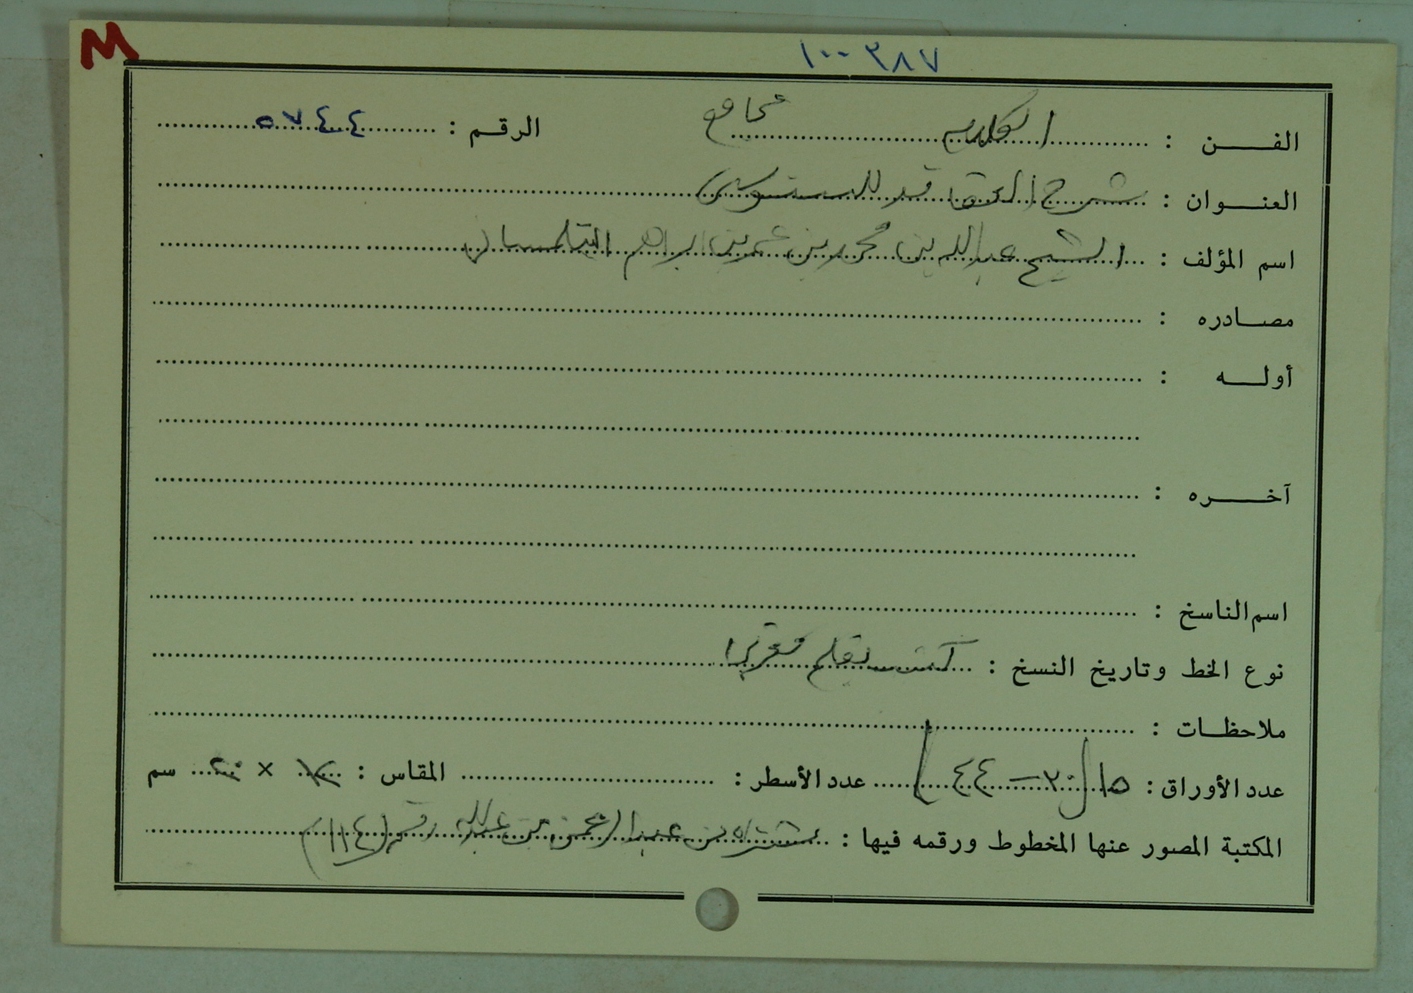 M
١٠٠٣٨٧
الفـــن : الكلام مجاميع الرقـم : ٥٧٤٤
العنـــوان : شرح العقائد للسنوسي
اسم المؤلف : الشيخ عبدالله بن محمد بن عمر بن ابراهيم التلمساني
مصـــادره :
أولـــه :
آخـــره :
اسم الناسخ :
نوع الخط وتاريخ النسخ : كتب بقلم مغربي
ملاحظـات :
عدد الأوراق : ١٥ [٣٠ – ٤٤] عدد الأسطر : المقاس : × سم
المكتبة المصور عنها المخطوط ورقمه فيها : بن عبدالرحمن بن عبدالله رقم (١١٤) م